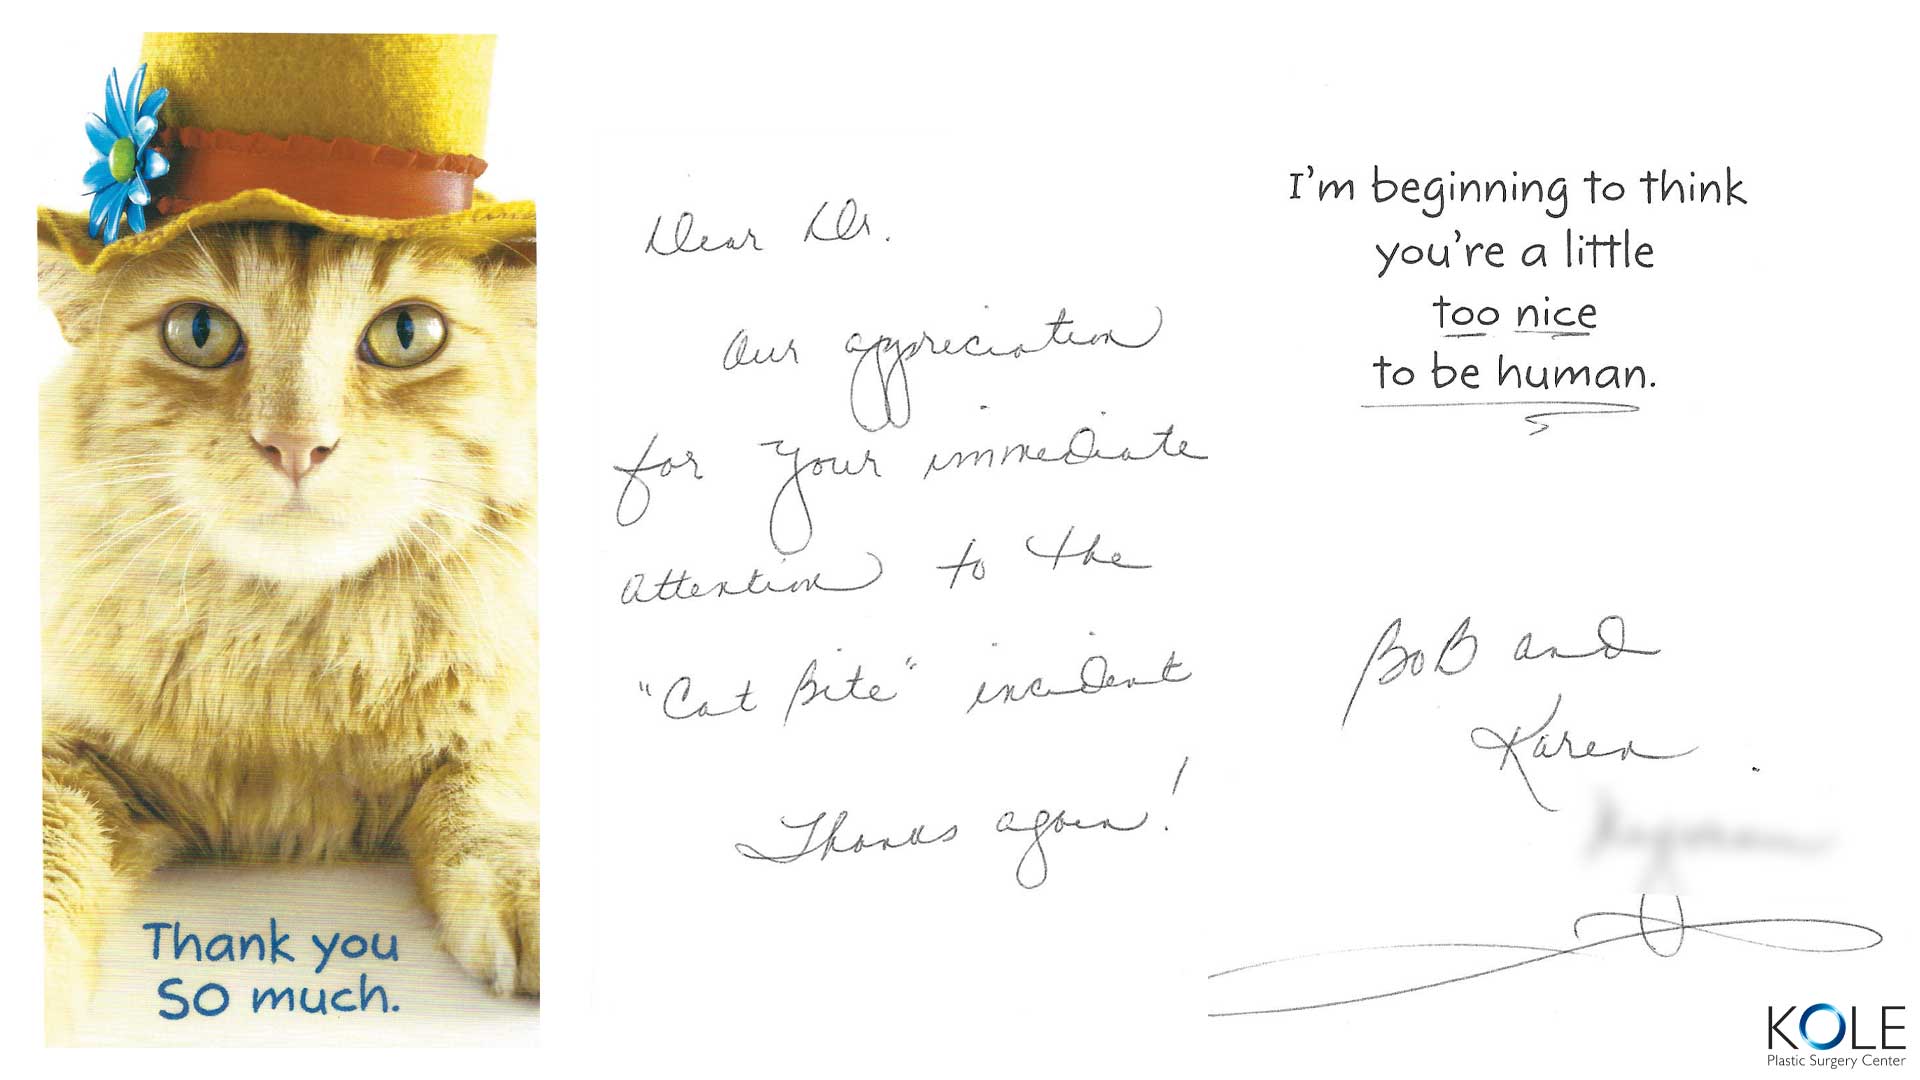 Thank you
SO much.
Dear Dr.
Our appreciation
for your immediate
attention to the
"Cat Bite" incident
Thanks again!
I'm beginning to think
you're a little
too nice
to be human.
BoB and
Karen
KOLE
Plastic Surgery Center